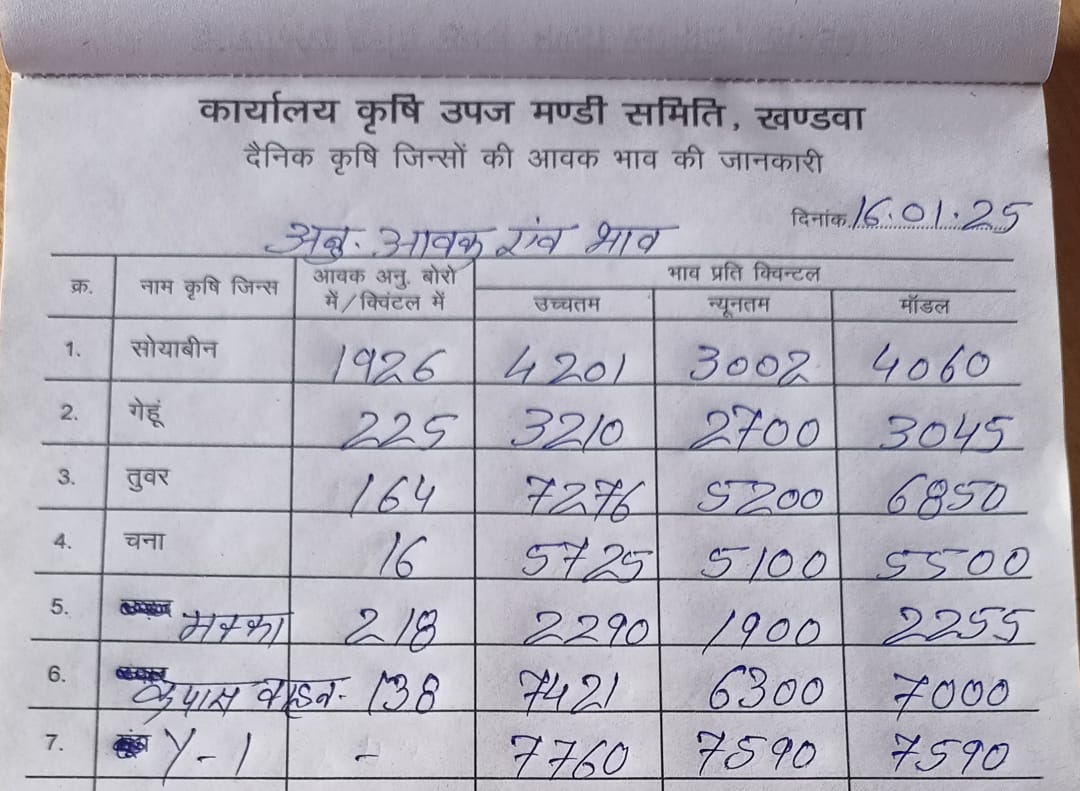 कार्यालय कृषि उपज मण्डी समिति, खण्डवा
दैनिक कृषि जिन्सों की आवक भाव की जानकारी
दिनांक 16.01.25
अनु. आवक एंव भाव
क्र. नाम कृषि जिन्स आवक अनु. बोरो में/क्विंटल में भाव प्रति क्विन्टल
उच्चतम न्यूनतम मॉडल
1. सोयाबीन 1926 4201 3002 4060
2. गेहूं 225 3210 2700 3045
3. तुवर 164 7276 5200 6850
4. चना 16 5725 5100 5500
5. मक्का 218 2290 1900 2255
6. कपास वाहन- 138 7421 6300 7000
7. Y-1 - 7760 7590 7590